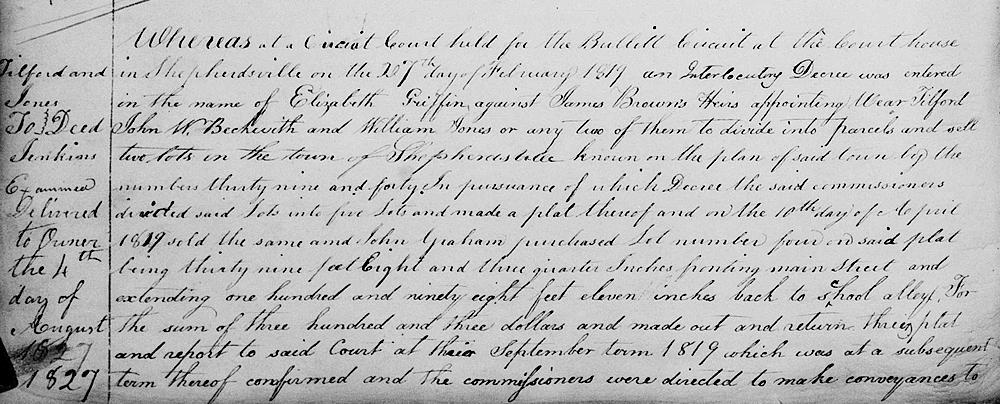 Whereas at a Circuit Court held for the Bullitt Circuit at the Court house
in Shepherdsville on the 27th day of February 1819 an Interlocutry Decree was entered
in the name of Elizabeth Griffin against James Brown's Heirs appointing Wear Tilford
John W. Beckwith and William Jones or any two of them to divide into parcels and sell
two lots in the town of Shepherdsville known on the plan of said town by the
numbers thirty nine and forty In pursuance of which Decree the said commissioners
divided said Lots into five Lots and made a plat thereof and on the 10th day of April
1819 sold the same and John Graham purchased Lot number four on said plat
being thirty nine feet Eight and three quarter Inches fronting main street and
extending one hundred and ninety eight feet eleven inches back to school alley, For
the sum of three hundred and three dollars and made out and return their plat
and report to said Court at their September term 1819 which was at a subsequent
term thereof confirmed and the commissioners were directed to make conveyances to
Tilford and
Jones
To } Deed
Jenkins
Examined
Delivered
to Owner
the 4th
day of
August
1827
1827